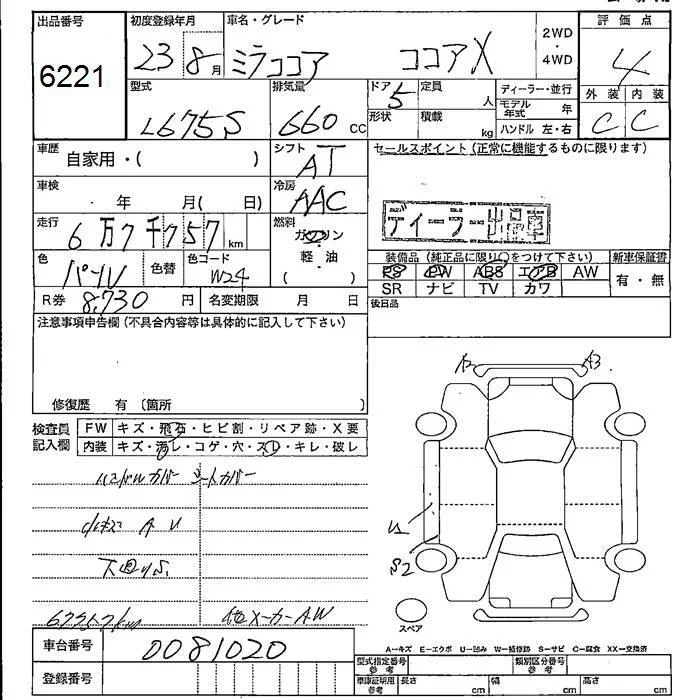 出品番号
6221
初度登録年月
23 8月
車名・グレード
ミラココア ココアX
2WD
・
4WD
評価点
4
型式
L675S
排気量
660 CC
ドア
5
定員
人
形状
積載
kg
ディーラー・並行
モデル年式 年
ハンドル 左・右
外装 内装
C C
車歴
自家用・( )
シフト
AT
セールスポイント(正常に機能するものに限ります)
車検
年 月( 日)
冷房
AAC
ディーラー出品車
走行
6万7千757km
燃料
ガソリン
軽・油
( )
色
パール
色替
色コード
W24
装備品(純正品に限り○をつけて下さい)
新車保証書
PS PW ABS エアB AW
SR ナビ TV カワ
有・無
R券 8,730 円
名変期限 月 日
後日品
注意事項申告欄(不具合内容等は具体的に記入して下さい)
修復歴 有(箇所 )
検査員記入欄
FW キズ・飛石・ヒビ割・リペア跡・X要
内装 キズ・汚レ・コゲ・穴・スレ・キレ・破レ
ハンドルカバー シートカバー
小キズ A U
下廻りS
67757km 他メーカーAW
A2 A3
U1
S2
スペア
A−キズ E−エクボ U−凹み W−補修跡 S−サビ C−腐食 XX−交換済
車台番号
0081020
登録番号
型式指定番号
参考
類別区分番号
参考
車庫証明用
参考
長さ cm
幅 cm
高さ cm